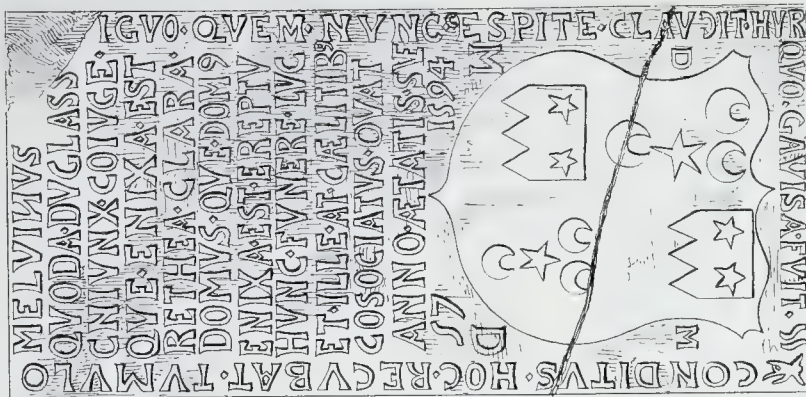 CONDITVS·HOC·RECVBAT·TVMVLO
MELVINVS
IGVO·QVEM·NVNC·CESPITE·CLAVDIT·HVR
QVO·GAVISA·FVIT·SI
QVODA·DVGLASS
CNIVNX·COIVGE·
QVE·ENIXA·EST
RETHEA·CLARA·
DOMVS·QVE·DOM9
ENIXA·EST·EREPTV
HVNC·FVNERE·LVG
ET·ILLE·AT·CÆLITIB9
COSOCIATVS·OVAT
ANNO·ÆTATIS·SVE
57 1594
D M
M D